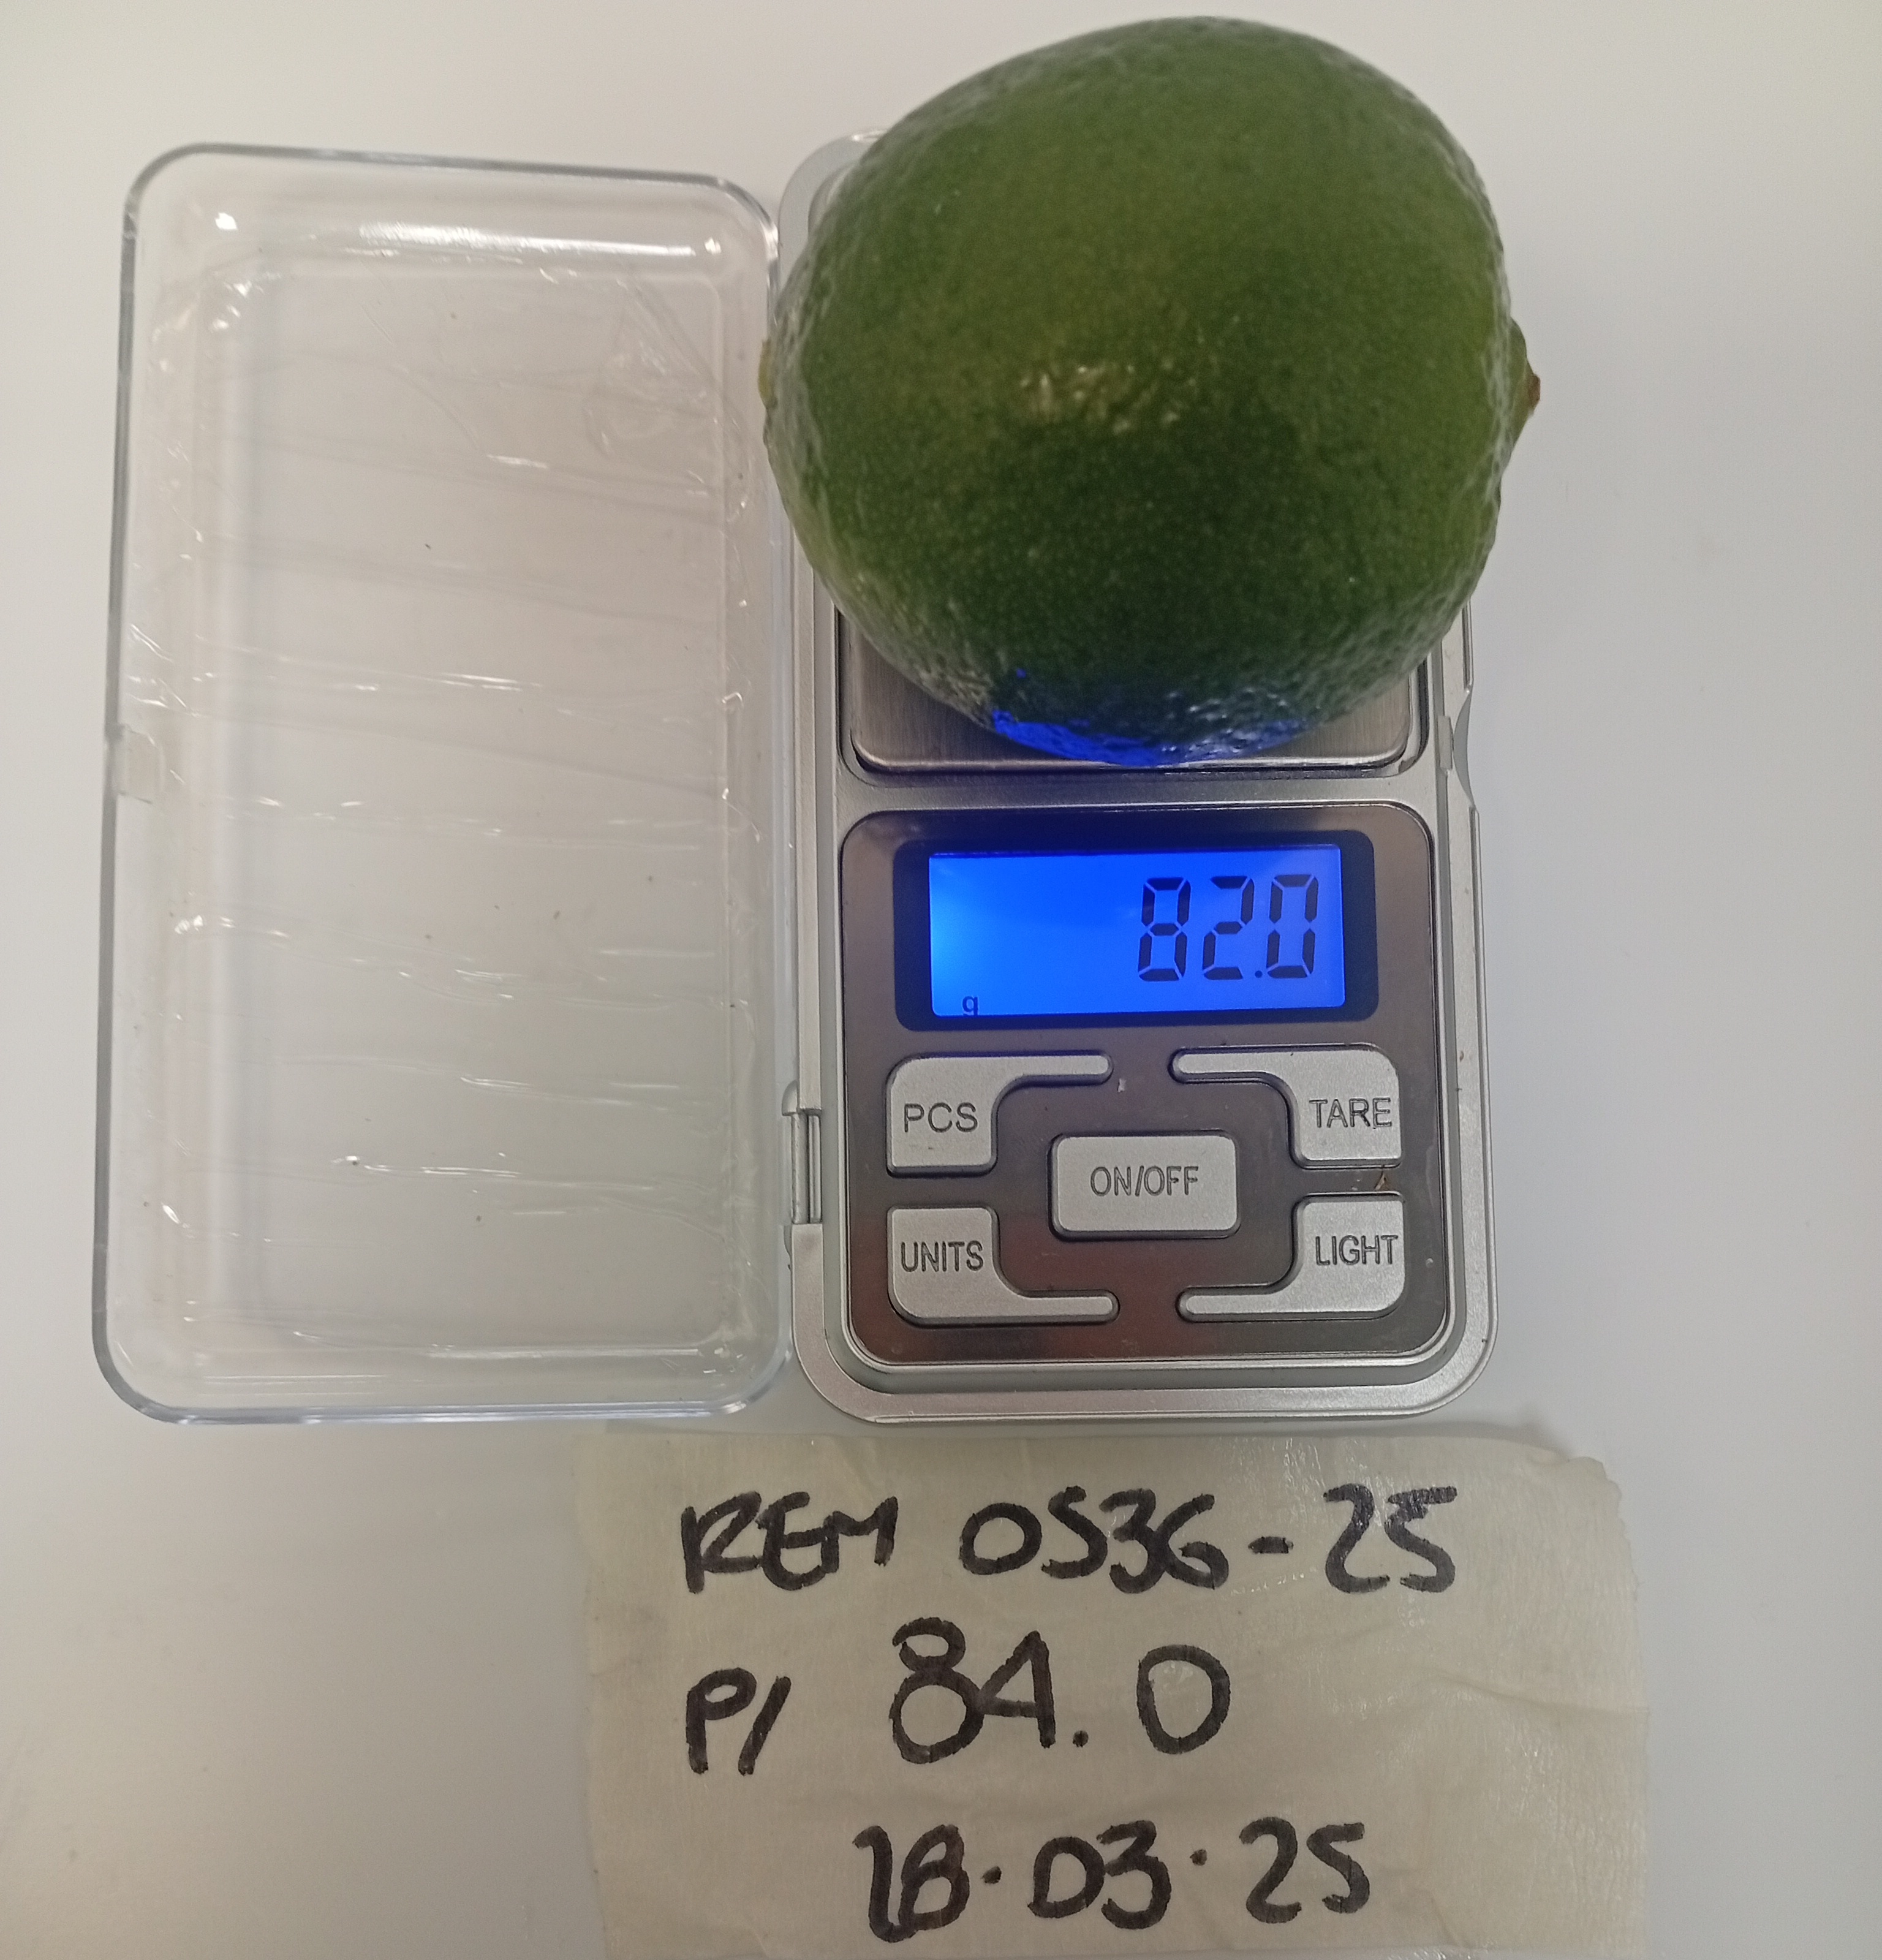 82.0
g
PCS
TARE
ON/OFF
UNITS
LIGHT
REM 0536-25
P/ 84.0
18.03.25